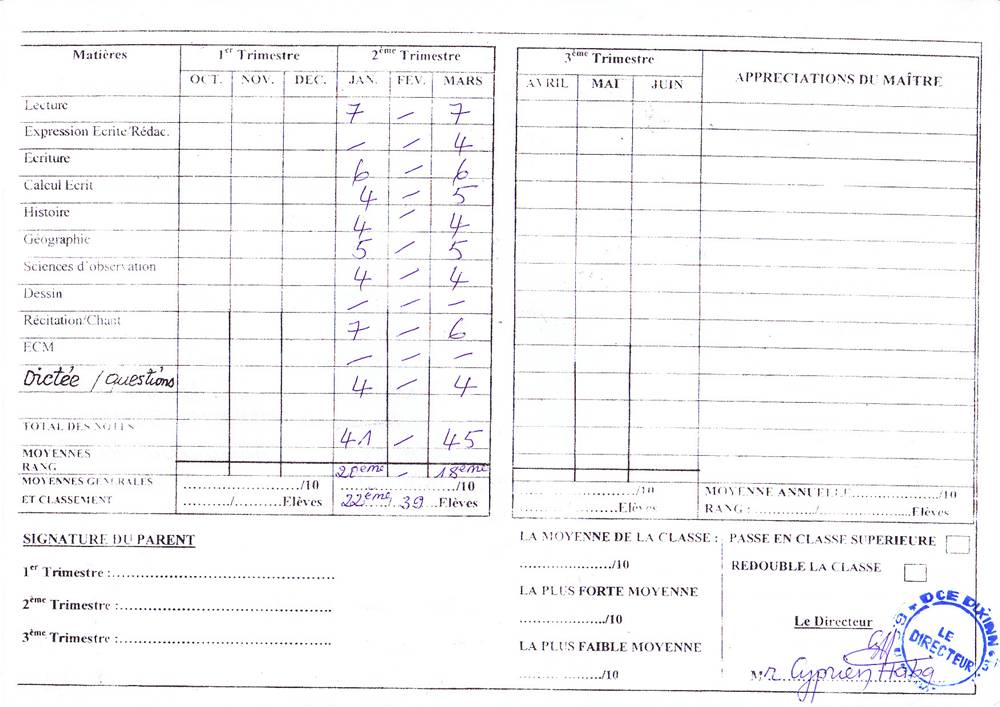 Matières 1er Trimestre 2ème Trimestre 3ème Trimestre APPRECIATIONS DU MAÎTRE
OCT. NOV. DEC. JAN. FEV. MARS AVRIL MAI JUIN
Lecture 7 – 7
Expression Ecrite/Rédac. – – 4
Ecriture 6 – 6
Calcul Ecrit 4 – 5
Histoire 4 – 4
Géographie 5 – 5
Sciences d'observation 4 – 4
Dessin – – –
Récitation/Chant 7 – 6
ECM – – –
Dictée / questions 4 – 4
TOTAL DES NOTES 41 – 45
MOYENNES
RANG – 18ème
MOYENNES GENERALES ...../10 ...../10 ...../10 MOYENNE ANNUELLE...../10
ET CLASSEMENT ...../.....Elèves 22ème/39 Elèves .....Elèves RANG :...../.....Elèves
SIGNATURE DU PARENT
1er Trimestre :.....
2ème Trimestre :.....
3ème Trimestre :.....
LA MOYENNE DE LA CLASSE :
...../10
LA PLUS FORTE MOYENNE
...../10
LA PLUS FAIBLE MOYENNE
...../10
PASSE EN CLASSE SUPERIEURE
REDOUBLE LA CLASSE
Le Directeur
Mr Cyprien Haba
DCE DIXINN
LE
DIRECTEUR